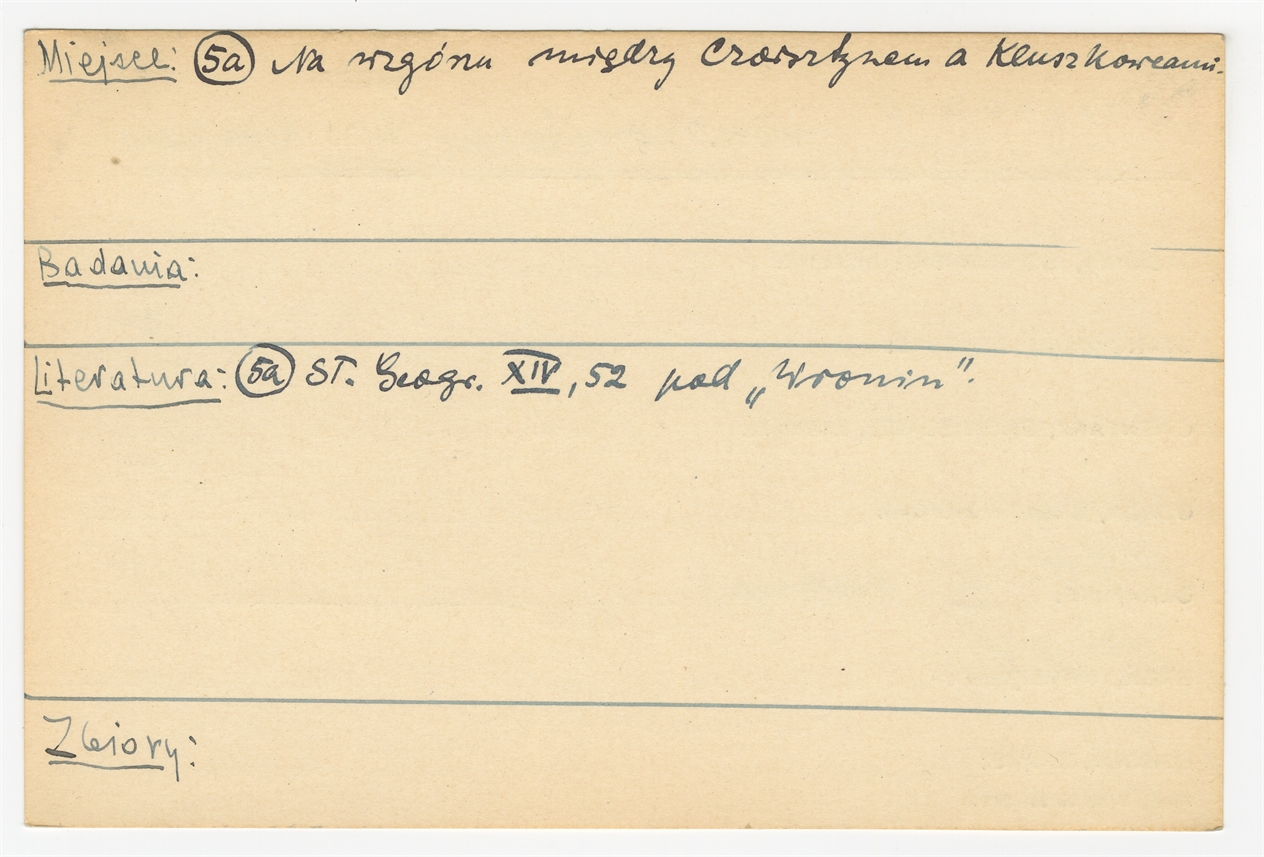 Miejsce: (5a) Na wzgórzu między Czorsztynem a Kluszkowcami.
Badania:
Literatura: (5a) ST. Geogr. XIV, 52 pod „Wronin".
Zbiory: